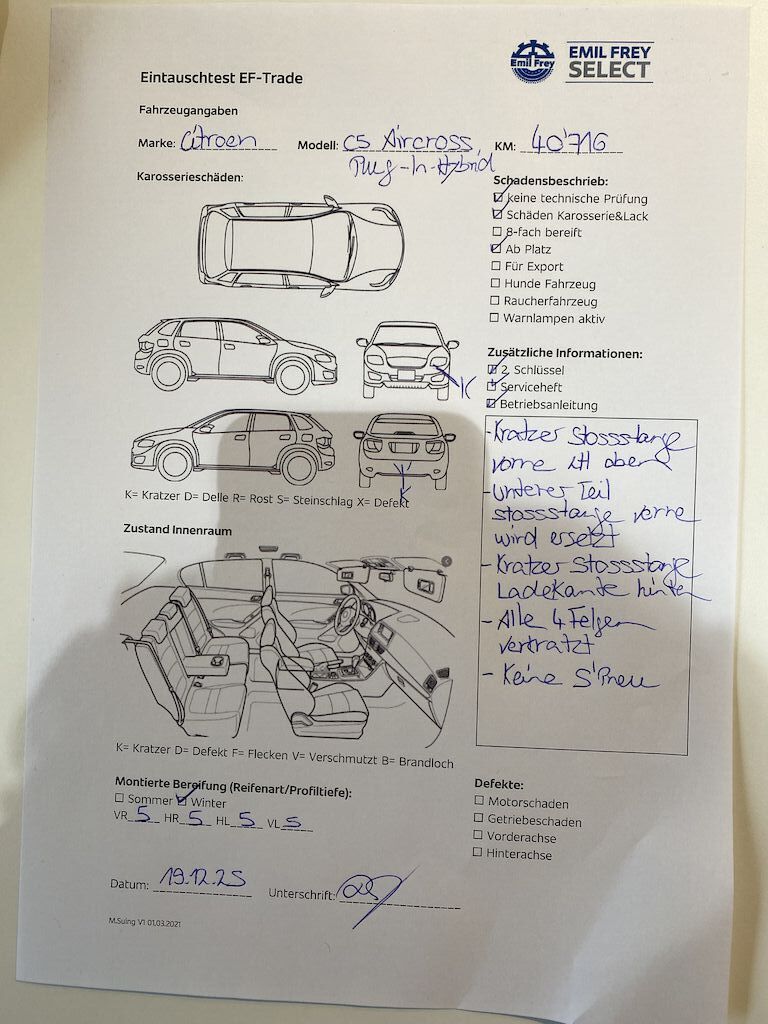 Emil Frey
EMIL FREY
SELECT
Eintauschtest EF-Trade
Fahrzeugangaben
Marke: Citroen Modell: C5 Aircross, KM: 40'716
Plug-In-Hybrid
Karosserieschäden:
Schadensbeschrieb:
☑ keine technische Prüfung
☑ Schäden Karosserie&Lack
☐ 8-fach bereift
☑ Ab Platz
☐ Für Export
☐ Hunde Fahrzeug
☐ Raucherfahrzeug
☐ Warnlampen aktiv
K
Zusätzliche Informationen:
☑ 2. Schlüssel
☑ Serviceheft
☑ Betriebsanleitung
K
K= Kratzer D= Delle R= Rost S= Steinschlag X= Defekt
- Kratzer Stossstange
vorne oben
- unterer Teil
stossstange vorne
wird ersetzt
- Kratzer Stossstange
Ladekante hinten
- Alle 4 Felgen
verkratzt
- Keine S'Pneu
Zustand Innenraum
K= Kratzer D= Defekt F= Flecken V= Verschmutzt B= Brandloch
Montierte Bereifung (Reifenart/Profiltiefe):
☐ Sommer ☑ Winter
VR 5 HR 5 HL 5 VL 5
Defekte:
☐ Motorschaden
☐ Getriebeschaden
☐ Vorderachse
☐ Hinterachse
Datum: 19.12.25 Unterschrift:
M.Suing V1 01.03.2021